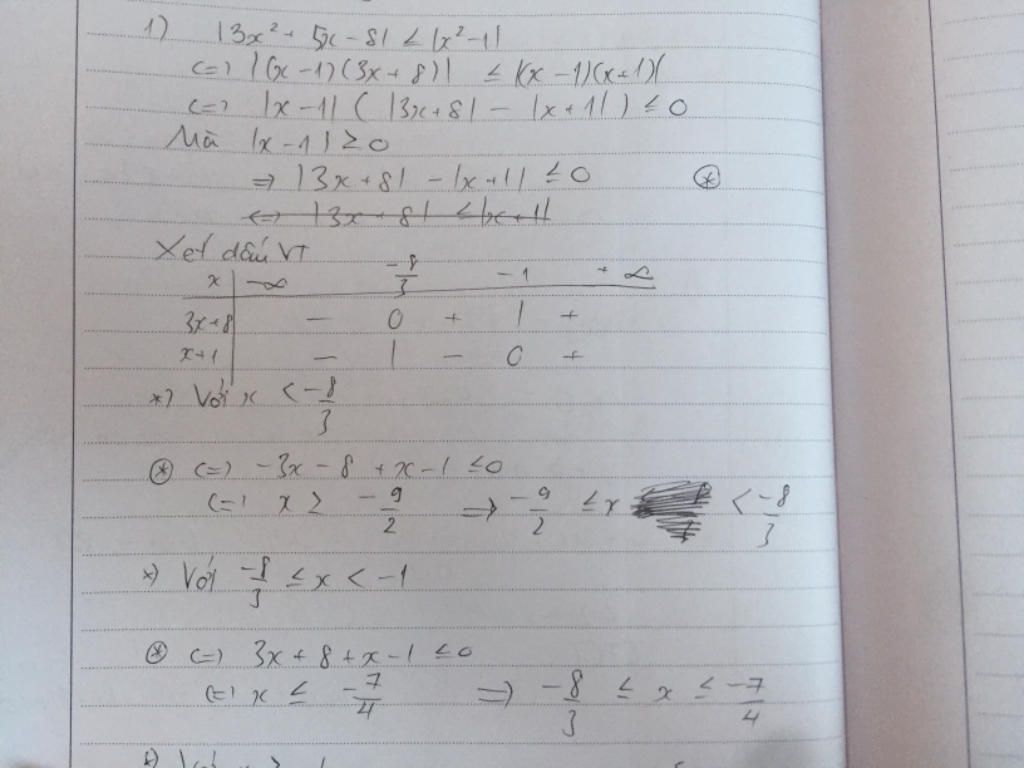 1) |3x² + 5x - 8| ≤ |x² - 1|
<=> |(x - 1)(3x + 8)| ≤ |(x - 1)(x + 1)|
<=> |x - 1| ( |3x + 8| - |x + 1| ) ≤ 0
Mà |x - 1| ≥ 0
=> |3x + 8| - |x + 1| ≤ 0 (*)
<=> |3x + 8| ≤ |x + 1|
Xét dấu VT
x | -∞ -8/3 -1 +∞
3x + 8 | - 0 + | +
x + 1 | - | - 0 +
*) Với x < -8/3
(*) <=> -3x - 8 + x - 1 ≤ 0
<=> x ≥ -9/2 => -9/2 ≤ x < -8/3
*) Với -8/3 ≤ x < -1
(*) <=> 3x + 8 + x - 1 ≤ 0
<=> x ≤ -7/4 => -8/3 ≤ x ≤ -7/4